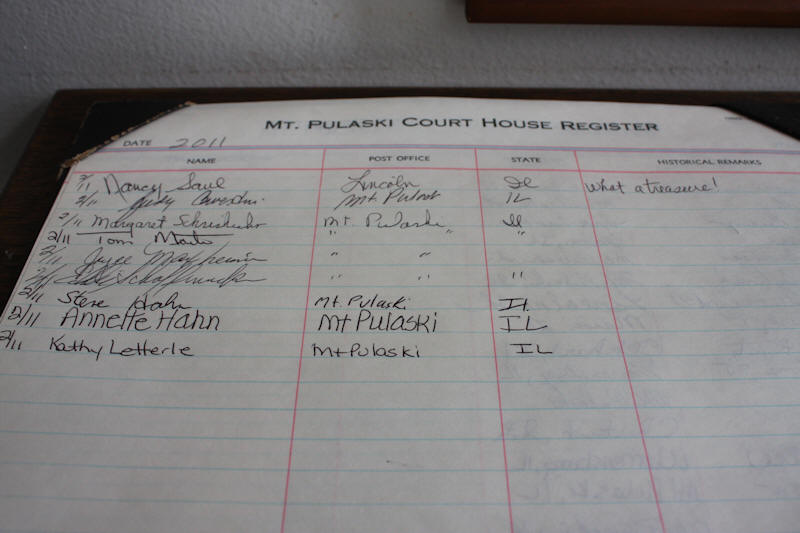 MT. PULASKI COURT HOUSE REGISTER
DATE 2011
NAME POST OFFICE STATE HISTORICAL REMARKS
2/11 Nancy Saul Lincoln Il What a treasure!
2/11 Judy Mt Pulaski IL
2/11 Margaret Mt. Pulaski Il
2/11 Tom " " "
2/11 Joyce " "
2/11 " " "
2/11 Steve Hahn Mt. Pulaski Il.
2/11 Annette Hahn Mt Pulaski IL
2/11 Kathy Letterle Mt Pulaski IL